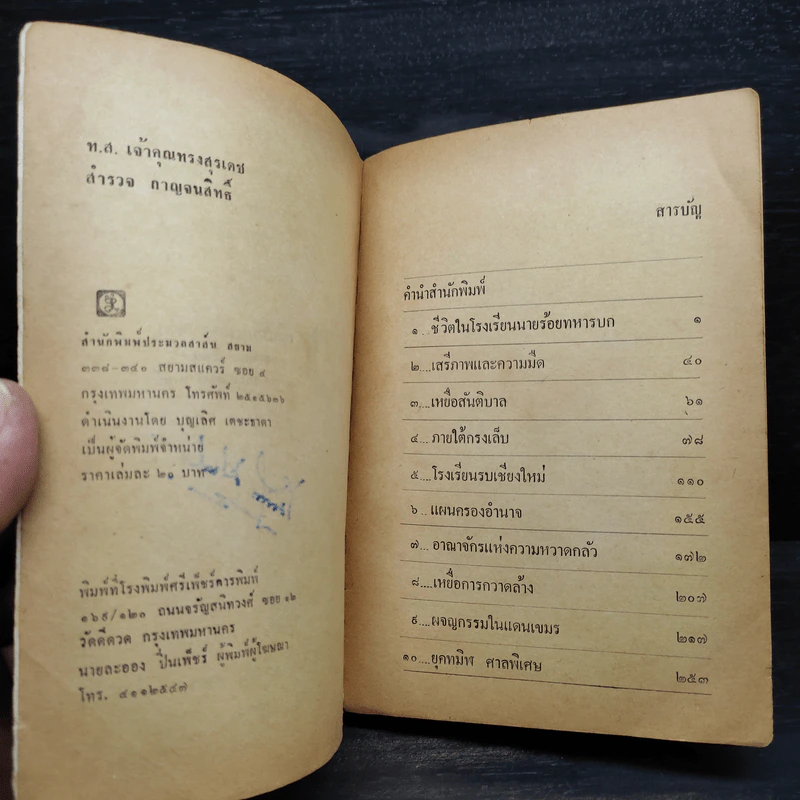 ท.ส. เจ้าคุณทรงสุรเดช
สำรวจ กาญจนสิทธิ์
สำนักพิมพ์ประมวลสาส์น สยาม
๓๓๘-๓๔๐ สยามสแควร์ ซอย ๔
กรุงเทพมหานคร โทรศัพท์ ๒๕๑๕๖๓๖
ดำเนินงานโดย บุญเลิศ เตชะธาดา
เป็นผู้จัดพิมพ์จำหน่าย
ราคาเล่มละ ๒๐ บาท
พิมพ์ที่โรงพิมพ์ศรีเพ็ชร์การพิมพ์
๑๖๙/๑๒๑ ถนนจรัญสนิทวงศ์ ซอย ๑๒
วัดดีดวด กรุงเทพมหานคร
นายละออง ปิ่นเพ็ชร์ ผู้พิมพ์ผู้โฆษณา
โทร. ๔๑๑๒๕๔๗
สารบัญ
คำนำสำนักพิมพ์
๑ ..ชีวิตในโรงเรียนนายร้อยทหารบก ๑
๒....เสรีภาพและความมืด ๔๐
๓...เหยื่อสันติบาล ๖๑
๔... ภายใต้กรงเล็บ ๗๘
๕....โรงเรียนรบเชียงใหม่ ๑๑๐
๖ ..แผนครองอำนาจ ๑๕๕
๗... อาณาจักรแห่งความหวาดกลัว ๑๗๒
๘....เหยื่อการกวาดล้าง ๒๐๗
๙...ผจญกรรมในแดนเขมร ๒๑๗
๑๐... ยุคทมิฬ ศาลพิเศษ ๒๕๓